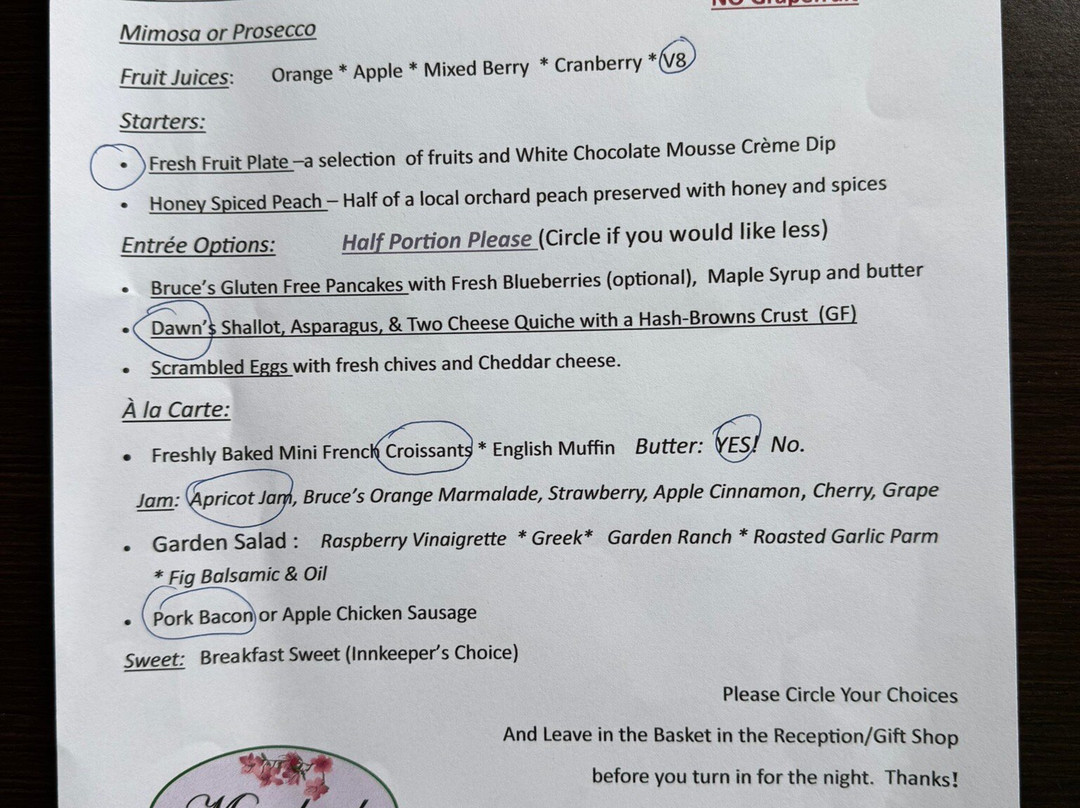 NO Grapefruit
Mimosa or Prosecco
Fruit Juices: Orange * Apple * Mixed Berry * Cranberry * V8
Starters:
• Fresh Fruit Plate –a selection of fruits and White Chocolate Mousse Crème Dip
• Honey Spiced Peach – Half of a local orchard peach preserved with honey and spices
Entrée Options: Half Portion Please (Circle if you would like less)
• Bruce's Gluten Free Pancakes with Fresh Blueberries (optional), Maple Syrup and butter
• Dawn's Shallot, Asparagus, & Two Cheese Quiche with a Hash-Browns Crust (GF)
• Scrambled Eggs with fresh chives and Cheddar cheese.
À la Carte:
• Freshly Baked Mini French Croissants * English Muffin Butter: YES! No.
Jam: Apricot Jam, Bruce's Orange Marmalade, Strawberry, Apple Cinnamon, Cherry, Grape
• Garden Salad : Raspberry Vinaigrette * Greek* Garden Ranch * Roasted Garlic Parm
* Fig Balsamic & Oil
• Pork Bacon or Apple Chicken Sausage
Sweet: Breakfast Sweet (Innkeeper's Choice)
Please Circle Your Choices
And Leave in the Basket in the Reception/Gift Shop
before you turn in for the night. Thanks!